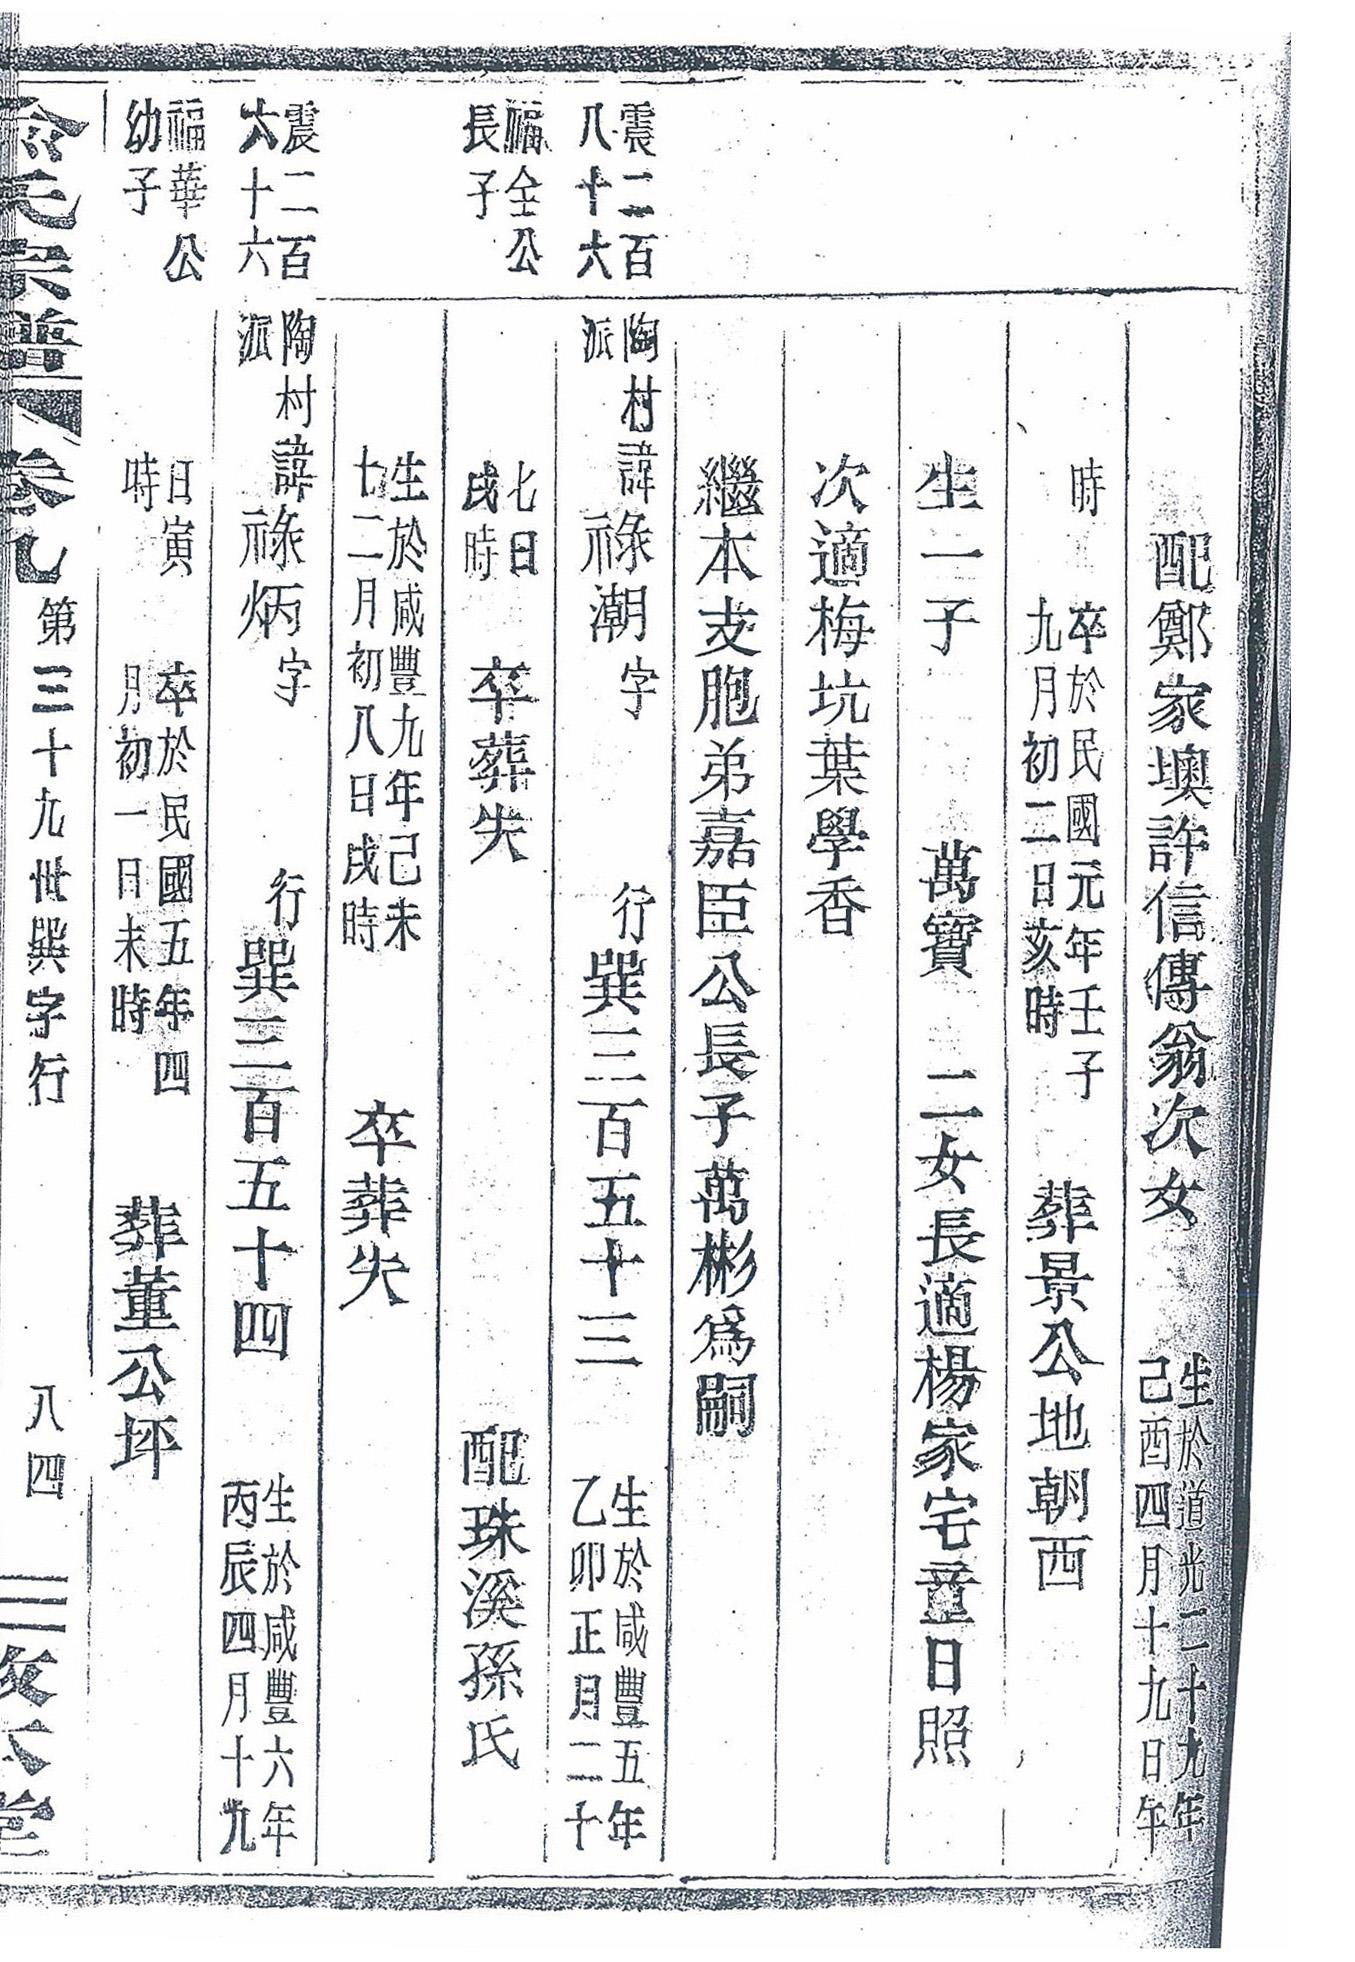 配鄭家墺許信傳翁次女 生於道光二十九年己酉四月十九日午
時 卒於民國元年壬子九月初二日亥時 葬景公地朝西
生一子 萬寶 二女長適楊家宅童日照
次適梅坑葉學香
繼本支胞弟嘉臣公長子萬彬為嗣
震二百八十六 陶村派諱祿潮字 行巽三百五十三 生於咸豐五年乙卯正月二十
福全公長子 七日戌時 卒葬失 配珠溪孫氏
生於咸豐九年己未十二月初八日戌時 卒葬失
震二百六十六 陶村派諱祿炳字 行巽三百五十四 生於咸豐六年丙辰四月十九
福華公幼子 日寅時 卒於民國五年四月初一日未時 葬董公坪
氏宗譜 卷九 第三十九世巽字行 八四